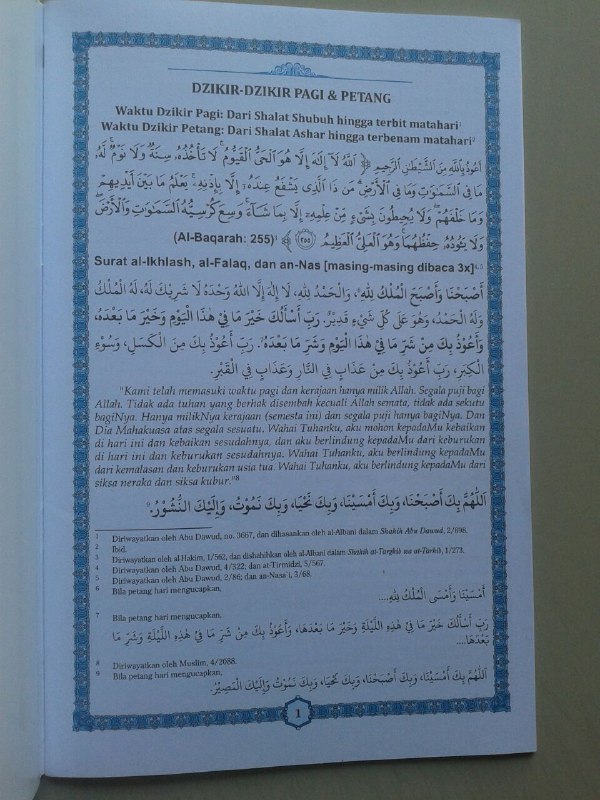 DZIKIR-DZIKIR PAGI & PETANG
Waktu Dzikir Pagi: Dari Shalat Shubuh hingga terbit matahari¹
Waktu Dzikir Petang: Dari Shalat Ashar hingga terbenam matahari²
أَعُوْذُ بِاللهِ مِنَ الشَّيْطٰنِ الرَّجِيْمِ ﴿ اللَّهُ لَا إِلَهَ إِلَّا هُوَ الْحَيُّ الْقَيُّومُ ۚ لَا تَأْخُذُهُ سِنَةٌ وَلَا نَوْمٌ ۚ لَّهُ
مَا فِي السَّمَوَاتِ وَمَا فِي الْأَرْضِ ۗ مَن ذَا الَّذِي يَشْفَعُ عِندَهُ إِلَّا بِإِذْنِهِ ۚ يَعْلَمُ مَا بَيْنَ أَيْدِيهِمْ
وَمَا خَلْفَهُمْ ۖ وَلَا يُحِيطُونَ بِشَيْءٍ مِّنْ عِلْمِهِ إِلَّا بِمَا شَاءَ ۚ وَسِعَ كُرْسِيُّهُ السَّمَوَاتِ وَالْأَرْضَ ۖ
وَلَا يَئُودُهُ حِفْظُهُمَا ۚ وَهُوَ الْعَلِيُّ الْعَظِيمُ ﴿٢٥٥﴾ (Al-Baqarah: 255)³
Surat al-Ikhlash, al-Falaq, dan an-Nas [masing-masing dibaca 3x]⁴,⁵
أَصْبَحْنَا وَأَصْبَحَ الْمُلْكُ لِلّٰهِ⁶، وَالْحَمْدُ لِلّٰهِ، لَا إِلٰهَ إِلَّا اللهُ وَحْدَهُ لَا شَرِيْكَ لَهُ، لَهُ الْمُلْكُ
وَلَهُ الْحَمْدُ، وَهُوَ عَلَى كُلِّ شَيْءٍ قَدِيْرٌ. رَبِّ أَسْأَلُكَ خَيْرَ مَا فِيْ هٰذَا الْيَوْمِ وَخَيْرَ مَا بَعْدَهُ،
وَأَعُوْذُ بِكَ مِنْ شَرِّ مَا فِيْ هٰذَا الْيَوْمِ وَشَرِّ مَا بَعْدَهُ⁷. رَبِّ أَعُوْذُ بِكَ مِنَ الْكَسَلِ، وَسُوْءِ
الْكِبَرِ، رَبِّ أَعُوْذُ بِكَ مِنْ عَذَابٍ فِي النَّارِ وَعَذَابٍ فِي الْقَبْرِ.
"Kami telah memasuki waktu pagi dan kerajaan hanya milik Allah. Segala puji bagi
Allah. Tidak ada tuhan yang berhak disembah kecuali Allah semata, tidak ada sekutu
bagiNya. Hanya milikNya kerajaan (semesta ini) dan segala puji hanya bagiNya. Dan
Dia Mahakuasa atas segala sesuatu. Wahai Tuhanku, aku mohon kepadaMu kebaikan
di hari ini dan kebaikan sesudahnya, dan aku berlindung kepadaMu dari keburukan
di hari ini dan keburukan sesudahnya. Wahai Tuhanku, aku berlindung kepadaMu
dari kemalasan dan keburukan usia tua. Wahai Tuhanku, aku berlindung kepadaMu dari
siksa neraka dan siksa kubur."⁸
اَللّٰهُمَّ بِكَ أَصْبَحْنَا، وَبِكَ أَمْسَيْنَا، وَبِكَ نَحْيَا، وَبِكَ نَمُوْتُ، وَإِلَيْكَ النُّشُوْرُ.⁹
1 Diriwayatkan oleh Abu Dawud, no. 3667, dan dihasankan oleh al-Albani dalam Shahih Abu Dawud, 2/698.
2 Ibid.
3 Diriwayatkan oleh al-Hakim, 1/562, dan dishahihkan oleh al-Albani dalam Shahih at-Targhib wa at-Tarhib, 1/273.
4 Diriwayatkan oleh Abu Dawud, 4/322; dan at-Tirmidzi, 5/567.
5 Diriwayatkan oleh Abu Dawud, 2/86; dan an-Nasa`i, 3/68.
6 Bila petang hari mengucapkan,
أَمْسَيْنَا وَأَمْسَى الْمُلْكُ لِلّٰهِ....
7 Bila petang hari mengucapkan,
رَبِّ أَسْأَلُكَ خَيْرَ مَا فِيْ هٰذِهِ اللَّيْلَةِ وَخَيْرَ مَا بَعْدَهَا، وَأَعُوْذُ بِكَ مِنْ شَرِّ مَا فِيْ هٰذِهِ اللَّيْلَةِ وَشَرِّ مَا
بَعْدَهَا....
8 Diriwayatkan oleh Muslim, 4/2088.
9 Bila petang hari mengucapkan,
اَللّٰهُمَّ بِكَ أَمْسَيْنَا، وَبِكَ أَصْبَحْنَا، وَبِكَ نَحْيَا، وَبِكَ نَمُوْتُ وَإِلَيْكَ الْمَصِيْرُ.
1